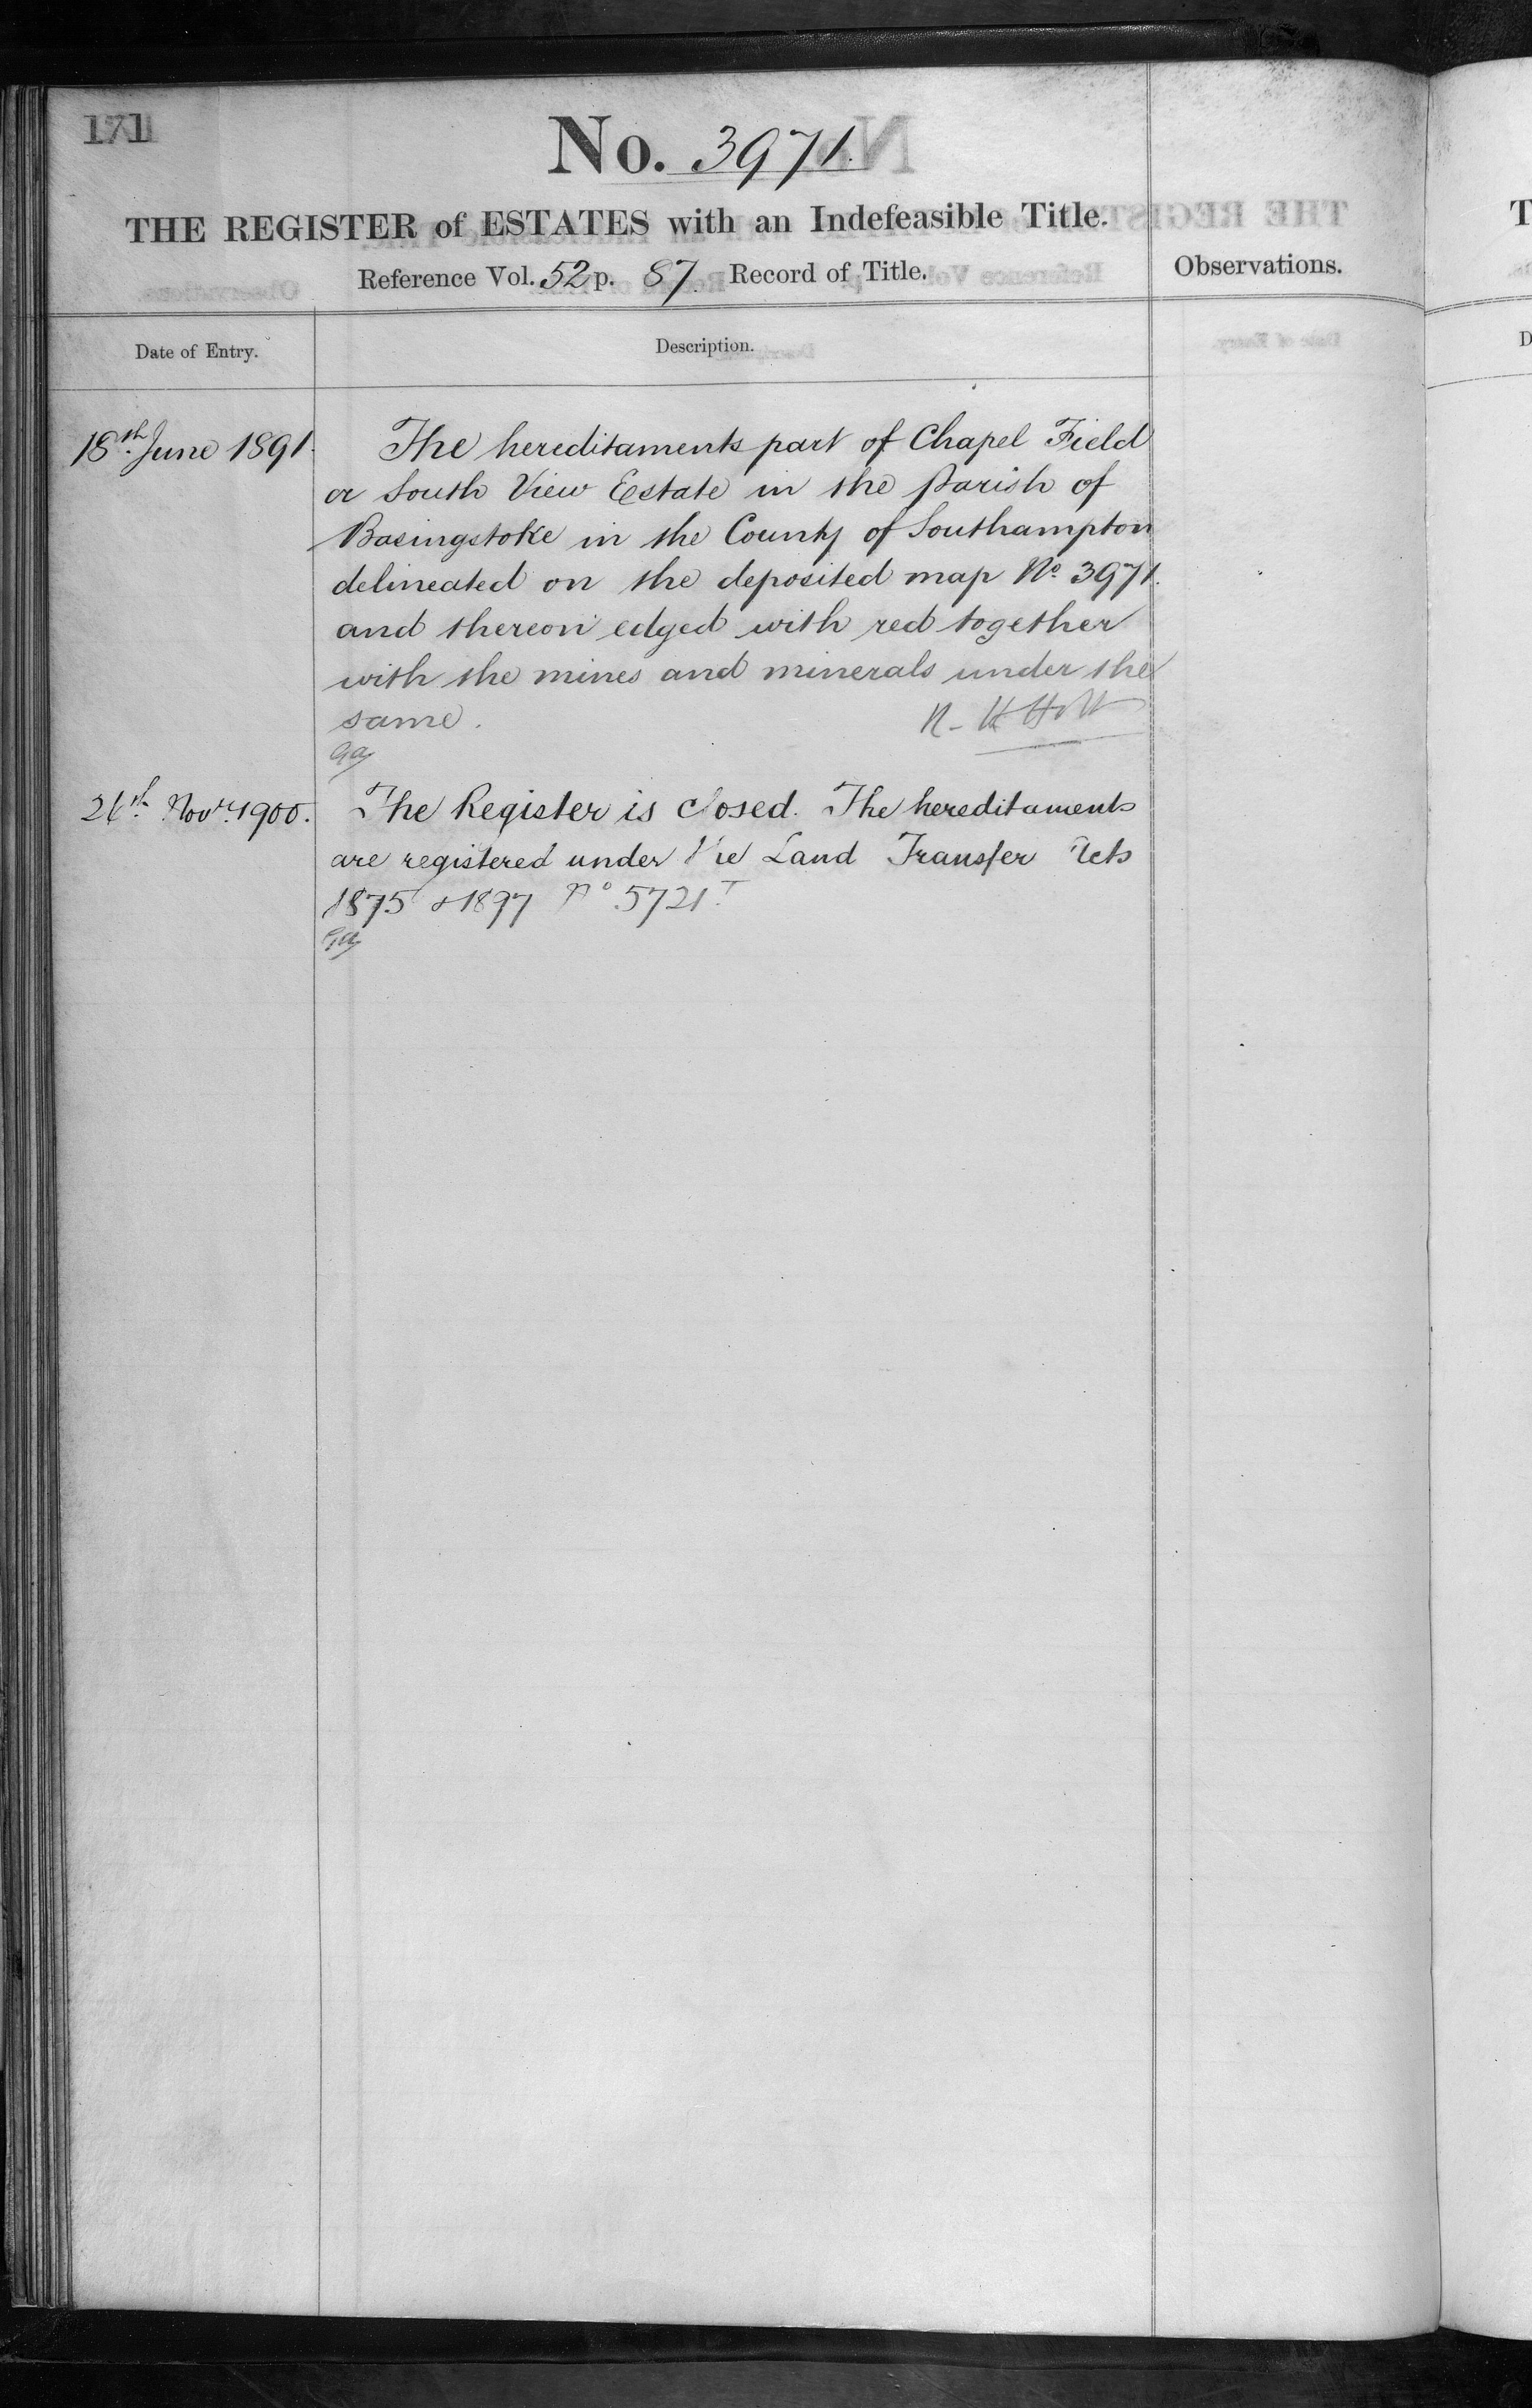 171
No. 3971.
THE REGISTER of ESTATES with an Indefeasible Title.
Reference Vol. 52 p. 87. Record of Title.
Observations.
Date of Entry.
Description.
18th. June 1891.
The hereditaments part of Chapel Field
or South View Estate in the Parish of
Basingstoke in the County of Southampton
delineated on the deposited map No. 3971.
and thereon edged with red together
with the mines and minerals under the
same.
26th. Novr. 1900.
The Register is closed. The hereditaments
are registered under the Land Transfer Acts
1875 & 1897 No 5721.